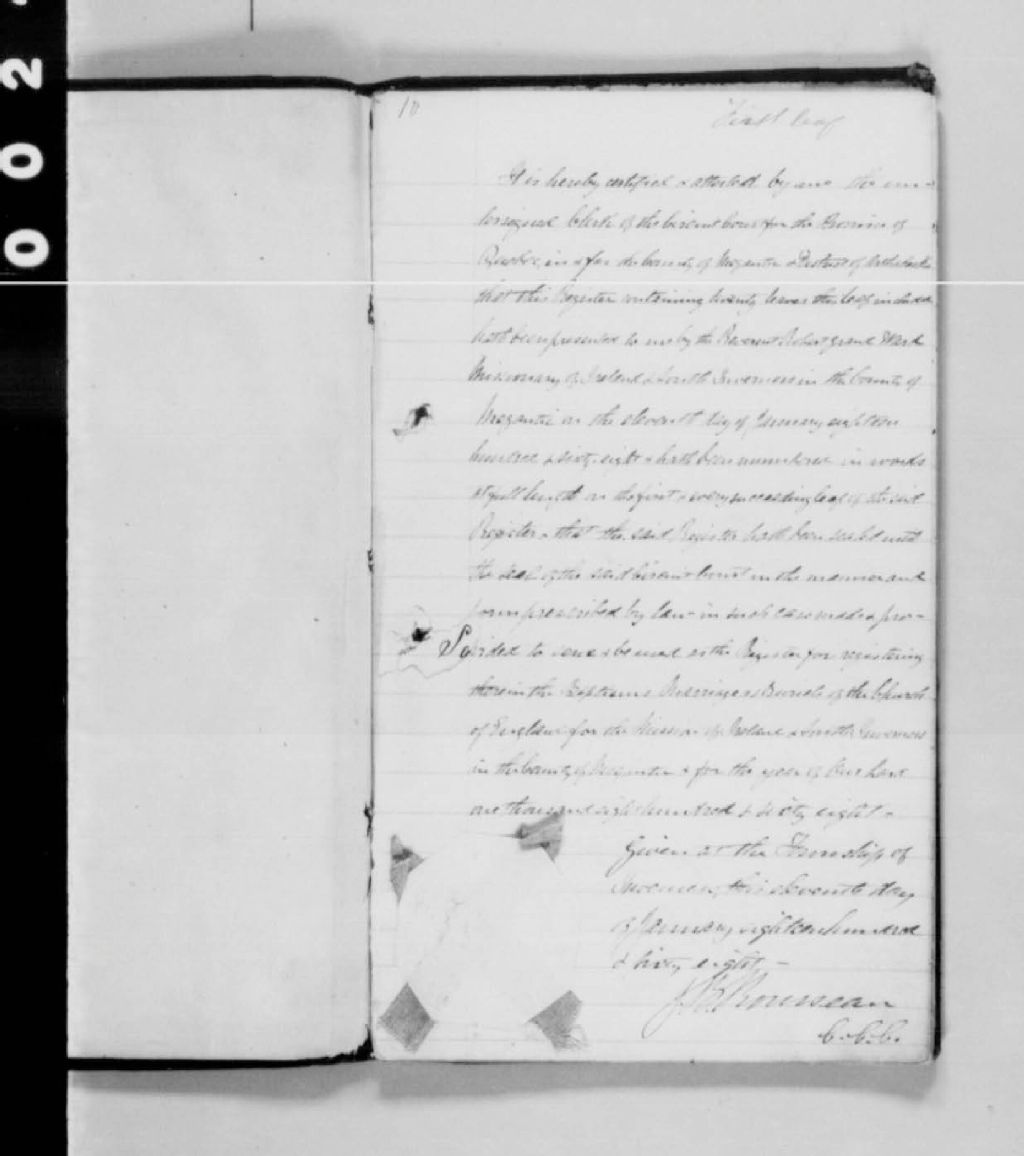 0 0 2
10
First leaf
It is hereby certified & attested by me the un-
dersigned Clerk of the Circuit Court for the Province of
Quebec, in & for the County of Megantic & District of Arthabaska
that this Register containing twenty leaves this leaf included
hath been presented to me by the Reverend Robert Grant Ward
Missionary of Ireland & South Inverness in the County of
Megantic on the eleventh day of January eighteen
hundred & sixty-eight & hath been numbered in words
at full length on the first & every succeeding leaf of the said
Register & that the said Register hath been sealed with
the seal of the said Circuit Court in the manner and
form prescribed by law in such case made & pro-
vided to serve & be used as the Register for registering
therein the Baptisms Marriages & Burials of the Church
of England for the Mission of Ireland & South Inverness
in the County of Megantic & for the year of Our Lord
one thousand eight hundred & sixty eight -
Given at the Township of
Inverness, this eleventh day
of January eighteen hundred
& sixty eight -
Rousseau
C.C.C.